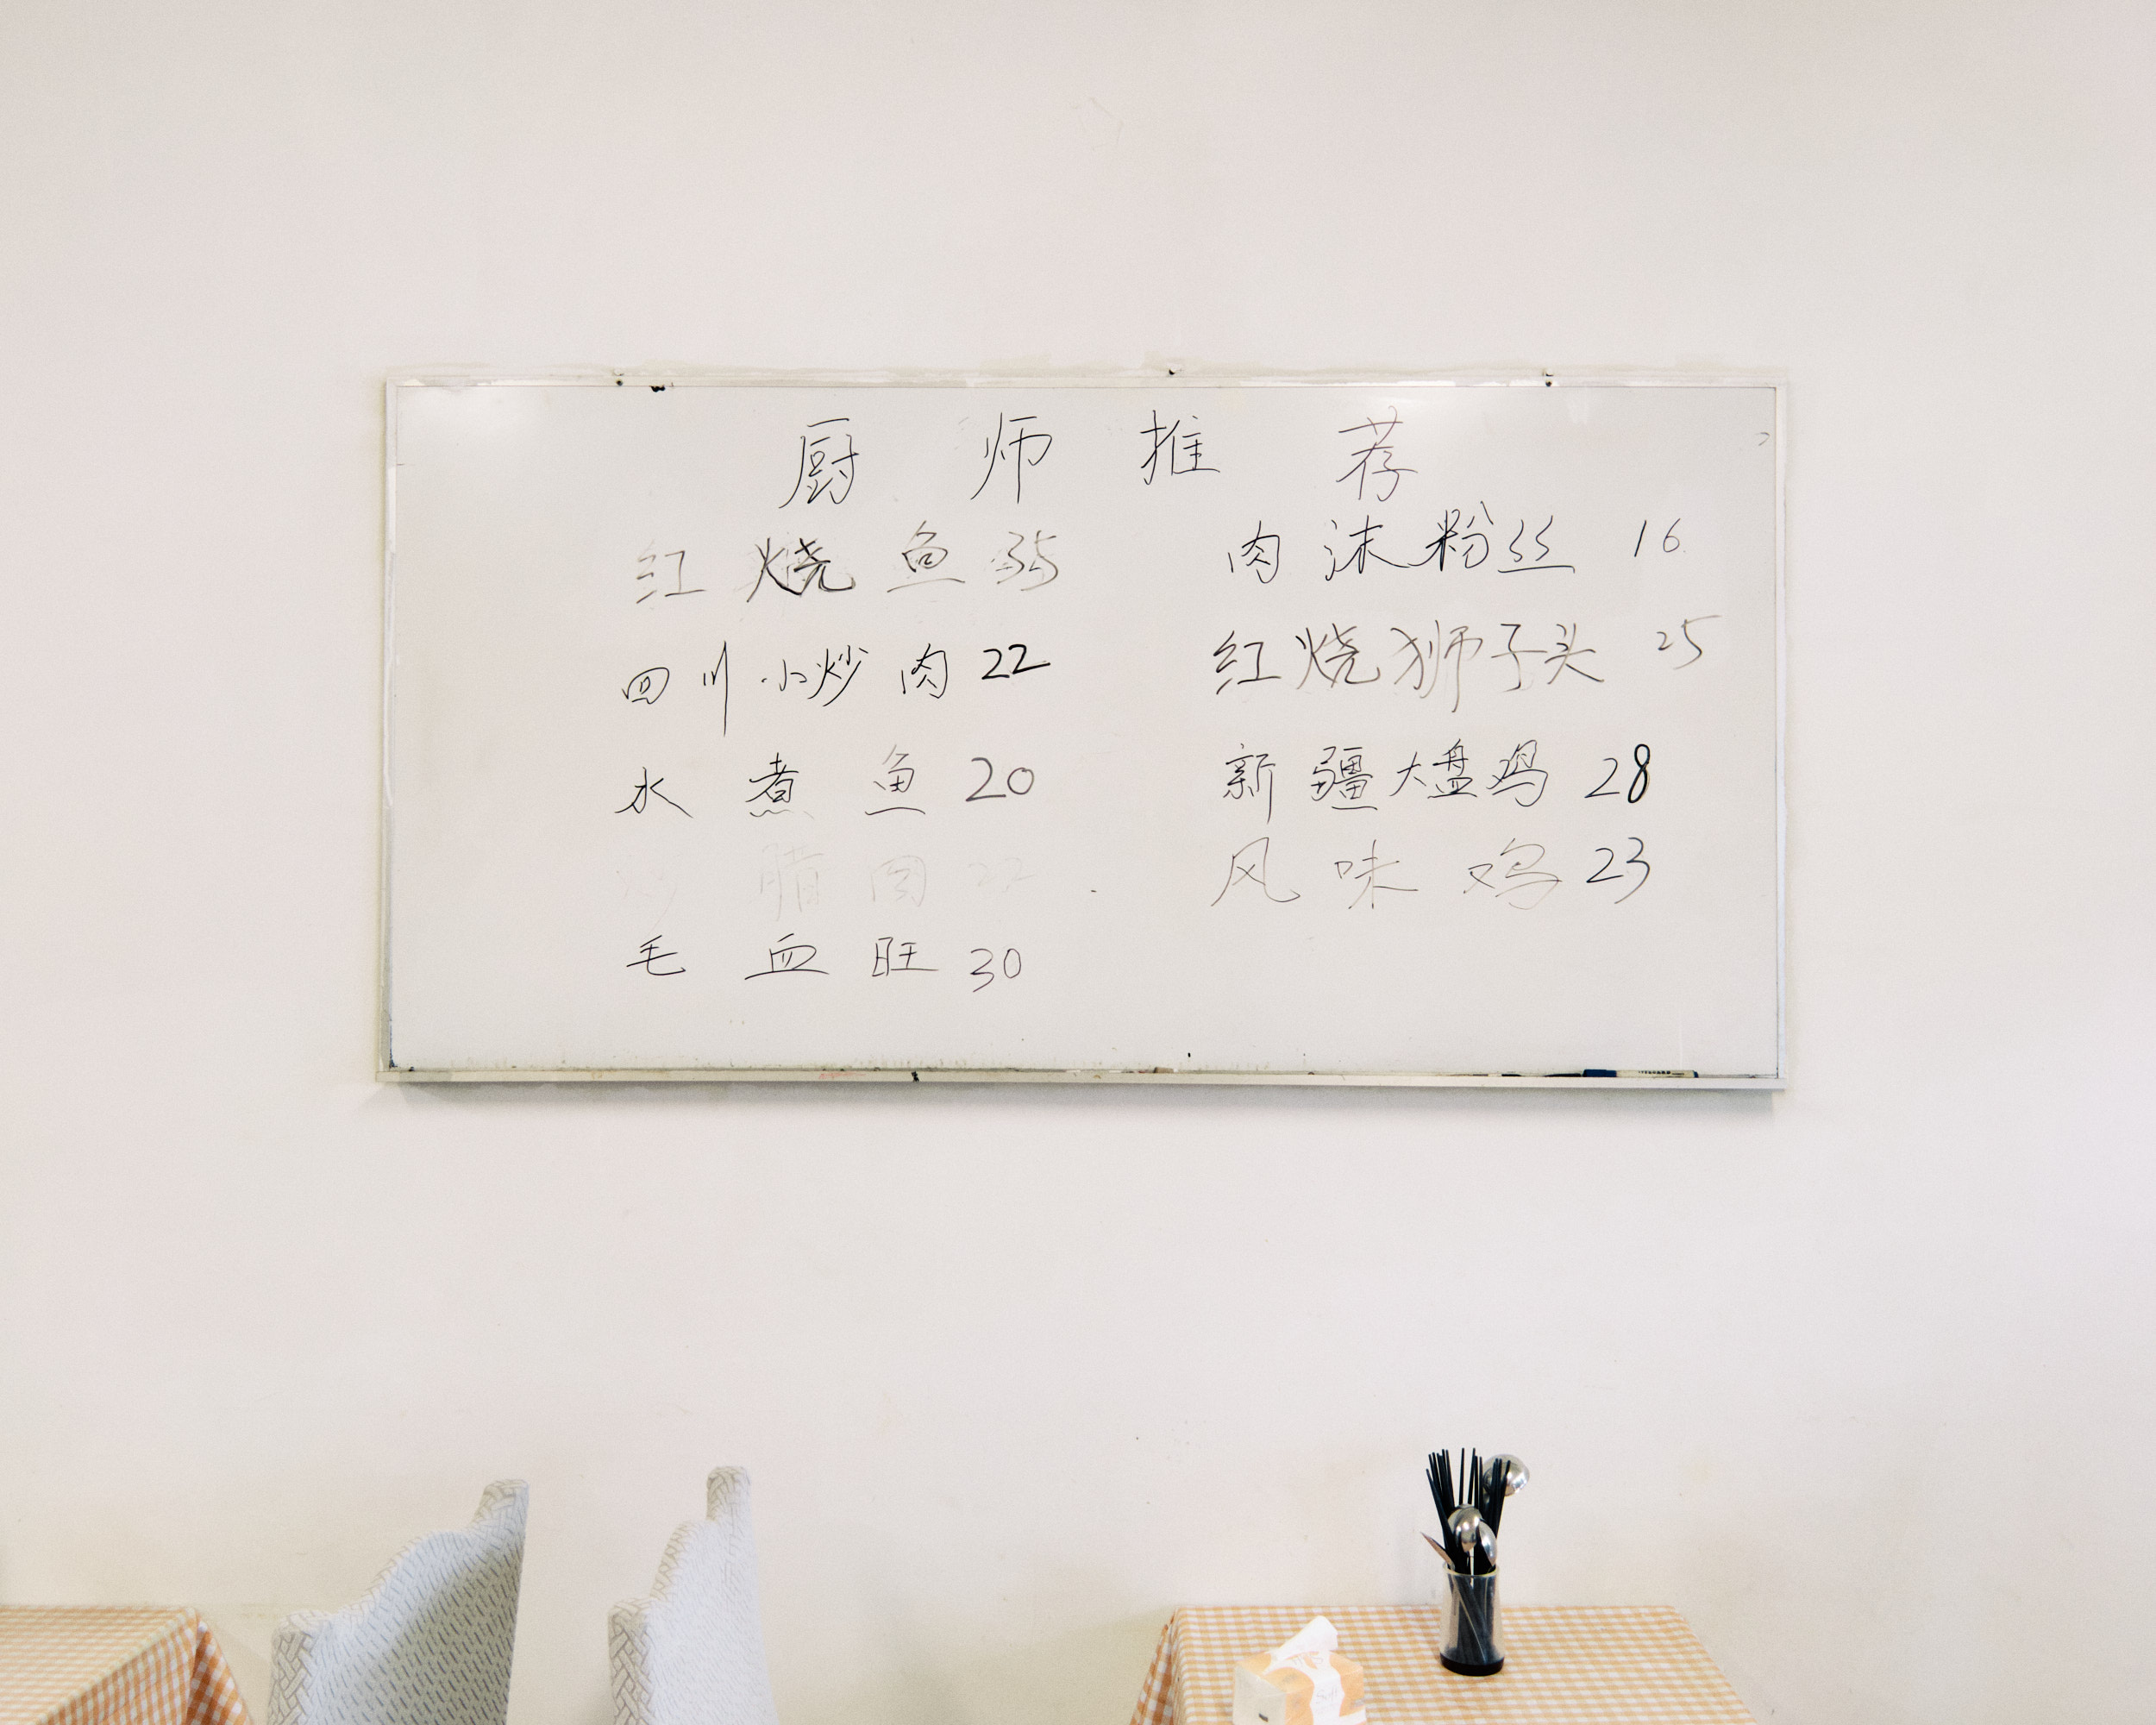 厨师推荐
红烧鱼 35
四川小炒肉 22
水煮鱼 20
炒腊肉 22
毛血旺 30
肉沫粉丝 16
红烧狮子头 25
新疆大盘鸡 28
风味鸡 23